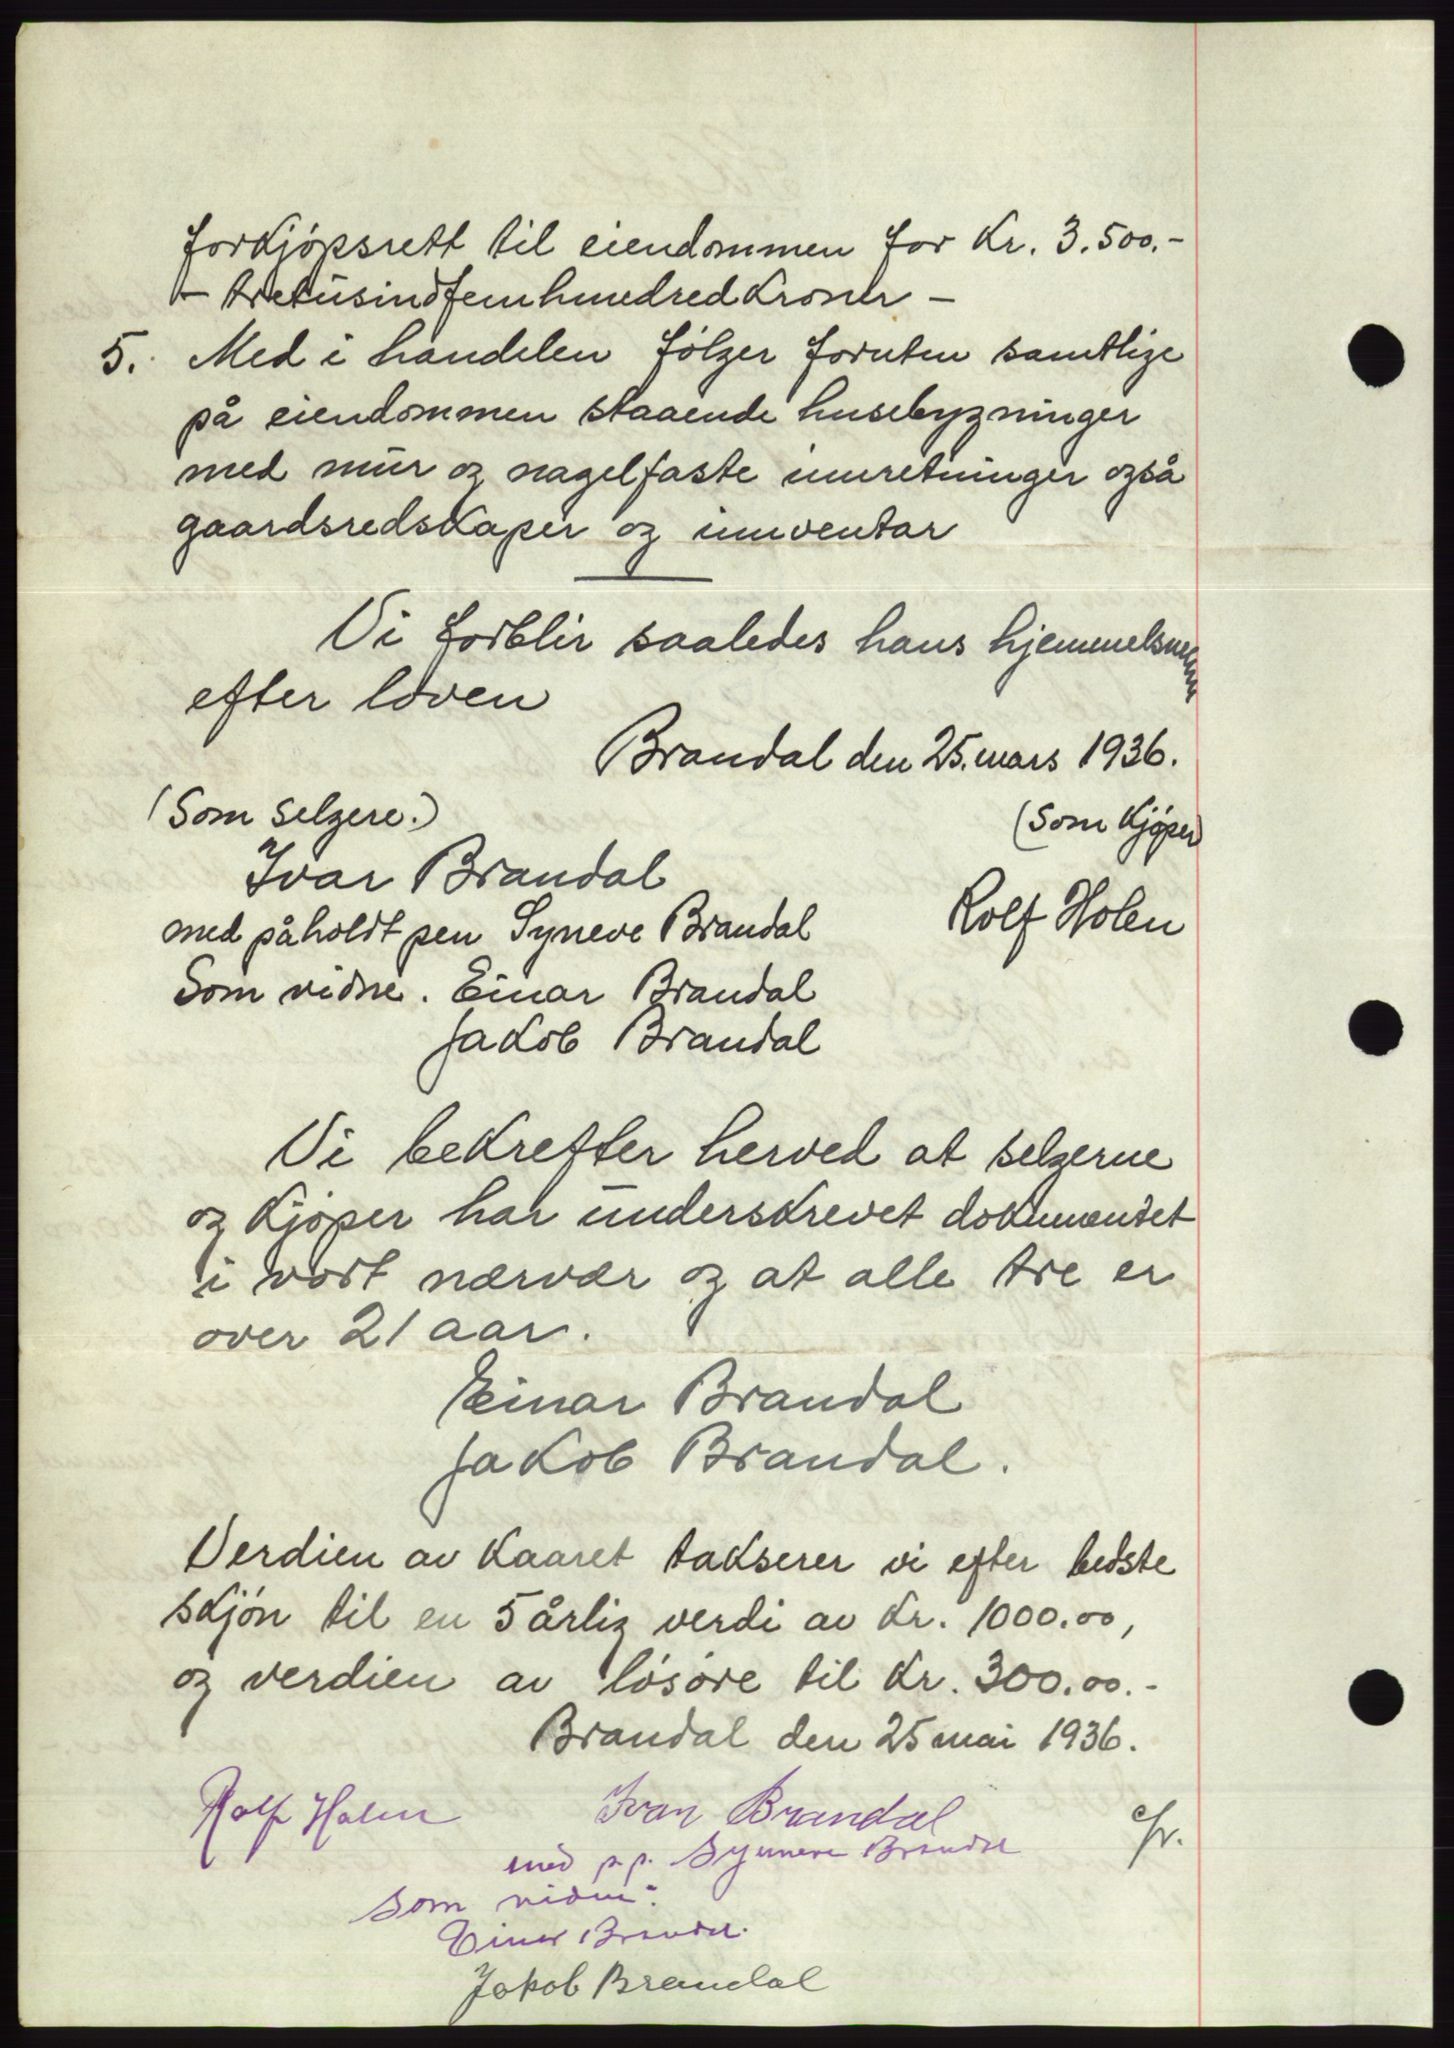 forkjøpsrett til eiendommen for Kr. 3.500.-
- tretusindfemhundredkroner -
5. Med i handelen følger foruten samtlige
på eiendommen staaende husebygninger
med mur og nagelfaste innretninger også
gaardsredskaper og innventar
Vi forblir saaledes hans hjemmelsmenn
efter loven
Brandal den 25. mars 1936.
(Som selgere.)
(Som Kjøper)
Ivar Brandal
med påholdt pen Syneve Brandal
Rolf Holen
Som vidne. Einar Brandal
Jakob Brandal
Vi bekrefter herved at selgerne
og Kjøper har underskrevet dokumentet
i vort nærvær og at alle tre er
over 21 aar.
Einar Brandal
Jakob Brandal.
Verdien av Kaaret takserer vi efter bedste
skjøn til en 5 årlig verdi av Kr. 1000.00,
og verdien av løsøre til Kr. 300.00.-
Brandal den 25 mai 1936.
Rolf Holen
Ivar Brandal
med p.p. Synneve Brandal
som vidne:
Einar Brandal.
Jakob Brandal